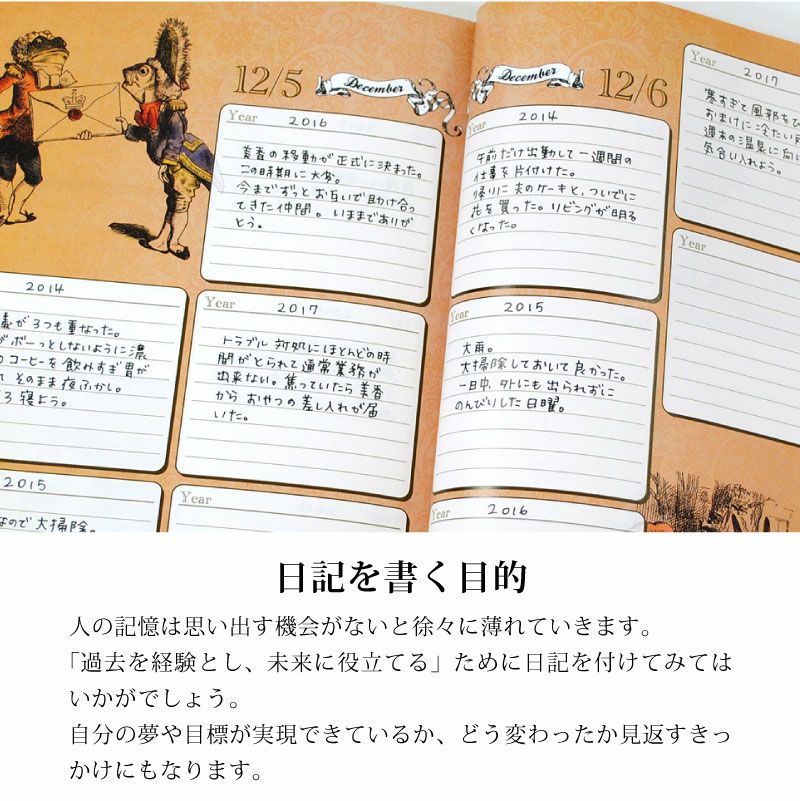 12/5 December
Year 2016
美香の移動が正式に決まった。
この時期に大変。
今までずっとお互いで助け合っ
てきた仲間。いままでありが
とう。
2014
議が3つも重なった。
ボーっとしないように濃
コーヒーを飲みすぎ胃が
そのまま夜ふかし。
ろ寝よう。
Year 2017
トラブル対処にほとんどの時
間がとられて通常業務が
出来ない。焦っていたら美香
からおやつの差し入れが届
いた。
2015
なので大掃除。
Year
December 12/6
Year 2014
午前だけ出勤して一週間の
仕事を片付けた。
帰りに夫のケーキと、ついでに
花を買った。リビングが明る
くなった。
Year 2015
大雨。
大掃除しておいて良かった。
一日中、外にも出られずに
のんびりした日曜。
Year 2016
Year 2017
寒すぎて風邪をひ
おまけに冷たい
週末の温泉に向
気合い入れよう。
Year
日記を書く目的
人の記憶は思い出す機会がないと徐々に薄れていきます。
「過去を経験とし、未来に役立てる」ために日記を付けてみては
いかがでしょう。
自分の夢や目標が実現できているか、どう変わったか見返すきっ
かけにもなります。